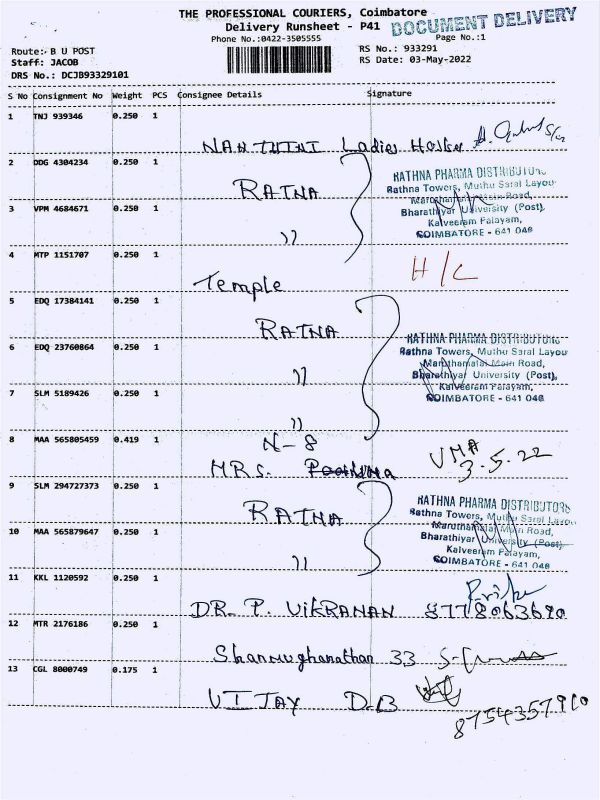 THE PROFESSIONAL COURIERS, Coimbatore
Delivery Runsheet - P41
DOCUMENT DELIVERY
Phone No.:0422-3505555
Page No.:1
Route: B U POST
RS No.: 933291
Staff: JACOB
RS Date: 03-May-2022
DRS No.: DCJB93329101
S No Consignment No Weight PCS Consignee Details Signature
1 TNJ 939346 0.250 1
NANTHINI Ladies
2 DDG 4304234 0.250 1
RATNA
RATHNA PHARMA DISTRIBUTORS
Rathna Towers, Muthu Saral Layou
Maruthamalai Main Road,
3 VPM 4684671 0.250 1
Bharathiyar University (Post),
Kalveeram Palayam,
COIMBATORE - 641 046
〃
4 MTP 1151707 0.250 1
H/C
Temple
5 EDQ 17384141 0.250 1
RATNA
RATHNA PHARMA DISTRIBUTORS
6 EDQ 23760864 0.250 1
Rathna Towers, Muthu Saral Layou
Maruthamalai Main Road,
Bharathiyar University (Post),
〃
7 SLM 5189426 0.250 1
Kalveeram Palayam,
COIMBATORE - 641 046
〃
8 MAA 565805459 0.419 1
N-8
UMA
3.5.22
MRS.
9 SLM 294727373 0.250 1
RATNA
RATHNA PHARMA DISTRIBUTORS
Rathna Towers, Muthu Saral Layou
Maruthamalai Main Road,
10 MAA 565879647 0.250 1
Bharathiyar University (Post),
Kalveeram Palayam,
COIMBATORE - 641 046
〃
11 KKL 1120592 0.250 1
DR. P. VIKRANAN 8778063690
12 MTR 2176186 0.250 1
Shanmughanathan 33
13 CGL 8000749 0.175 1
VIJAY D.B
8754357910